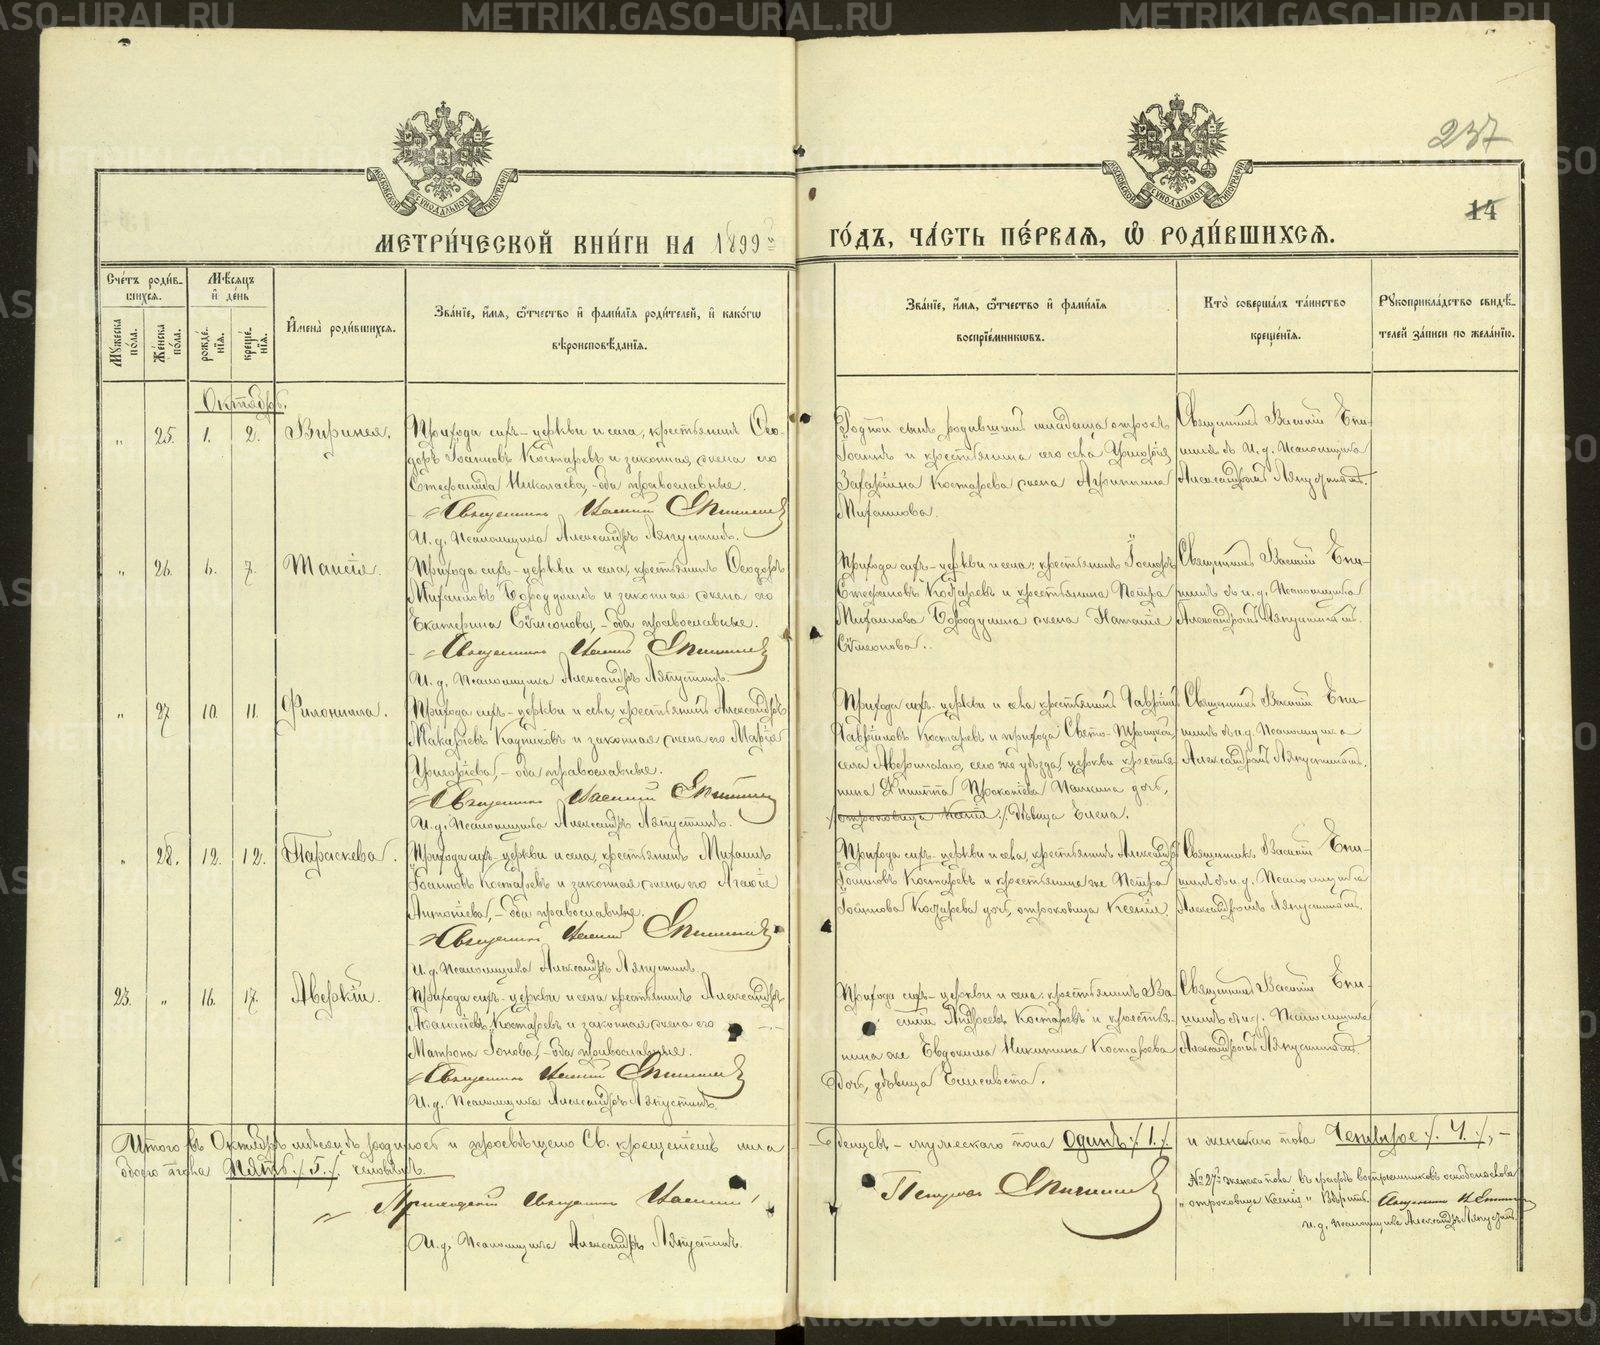 237
14
МОСКОВСКОЙ СѴНОДАЛЬНОЙ ТИПОГРАФІИ
МОСКОВСКОЙ СѴНОДАЛЬНОЙ ТИПОГРАФІИ
МЕТРИ́ЧЕСКОЙ КНИ́ГИ НА 1899й
ГО́ДЪ, ЧА́СТЬ ПЕ́РВАЯ, Ѡ҆ РОДИ́ВШИХСЯ.
Сче́тъ роди́в-
шихся.
Мꙋ́жеска по́ла.
Же́нска по́ла.
Мѣ́сяцъ и҆ де́нь
рожде́-
нїя.
креще́-
нїя.
И҆мена̀ роди́вшихся.
Зва́нїе, и҆́мя, ѻ҆́тчество и҆ фами́лїя роди́телей, и҆ како́гѡ
вѣроисповѣ́данїя.
Зва́нїе, и҆́мя, ѻ҆́тчество и҆ фами́лїя
воспрїе́мникѡвъ.
Кто̀ соверша́лъ та́инство
креще́нїя.
Рꙋкоприкла́дство свидѣ́-
телей за́писи по жела́нїю.
Октябрь.
„ 25. 1. 2. Виринея.
Прихода сихъ - церкви и села, крестьянинъ Ѳео-
доръ Іоанновъ Костаревъ и законная жена его
Стефанида Николаева, - оба православные.
Священникъ Василій
И. д. Псаломщика Александръ Ляпустинъ.
Родной сынъ родившій младенца отрокъ
Іоаннъ и крестьянина сего села Григорія
Захаріина Костарева жена Агриппина
Михаилова.
Священникъ Василій Епи-
И. д. Псаломщика
Александромъ Ляпустинымъ.
„ 26. 6. 7. Таисія.
Прихода сихъ - церкви и села, крестьянинъ Ѳеодоръ
Михаиловъ Бородулинъ и законная жена его
Екатерина Сѵмеонова, - оба православные.
Священникъ Василій
И. д. Псаломщика Александръ Ляпустинъ.
Прихода сихъ - церкви и села, крестьянинъ
Стефановъ Костаревъ и крестьянина Петра
Михаилова Бородулина жена Наталія
Сѵмеонова.
Священникъ Василій Епи-
и. д. Псаломщика
Александромъ Ляпустинымъ.
„ 27 10. 11. Филонилла.
Прихода сихъ - церкви и села, крестьянинъ Александръ
Макаріевъ Кадниковъ и законная жена его Марія
Григоріева, - оба православные.
Священникъ Василій
И. д. Псаломщика Александръ Ляпустинъ.
Прихода сихъ - церкви и села крестьянинъ Гавріилъ
Гавріиловъ Костаревъ и прихода Свято-Троицкой,
села Аверинскаго, сего же уѣзда, церкви крестья-
нина Прокопіева дочь,
отроковица Ксенія /дѣвица Елена.
Священникъ Василій Епи-
и. д. Псаломщика
Александромъ Ляпустинымъ.
„ 28. 12. 12. Параскева.
Прихода сихъ - церкви и села, крестьянинъ Михаилъ
Іоанновъ Костаревъ и законная жена его Агаѳія
оба православные.
Священникъ Василій
И. д. Псаломщика Александръ Ляпустинъ.
Прихода сихъ - церкви и села, крестьянинъ Александръ
Іоанновъ Костаревъ и крестьянина же Петра
Костарева дочь, отроковица Ксенія.
Священникъ Василій Епи-
и. д. Псаломщика
Александромъ Ляпустинымъ.
23. „ 16. 17. Аверкій.
Прихода сихъ - церкви и села крестьянинъ Александръ
Аѳанасіевъ Костаревъ и законная жена его
Матрона Іонова, - оба православные.
Священникъ Василій
И. д. Псаломщика Александръ Ляпустинъ.
Прихода сихъ - церкви и села крестьянинъ Ва-
силій Андреевъ Костаревъ и крестья-
нина же Евдокима Никитина Костарева
дочь, дѣвица Елисавета.
Священникъ Василій Епи-
и. д. Псаломщика
Александромъ Ляпустинымъ.
Итого въ Октябрѣ мѣсяцѣ родилось и просвѣщено Св. крещеніемъ мла
денцевъ - мужескаго пола одинъ /1./ и женскаго пола Четыре /. 4./, -
обоего пола пять /. 5./. человѣкъ.
Приходскій Священникъ Василій
И. д. Псаломщика Александръ Ляпустинъ.
№ 27й женска пола въ графѣ воспріемниковъ
„ отроковица Ксенія „
И. д. Псаломщика Александръ Ляпустинъ.
METRIKI.GASO-URAL.RU